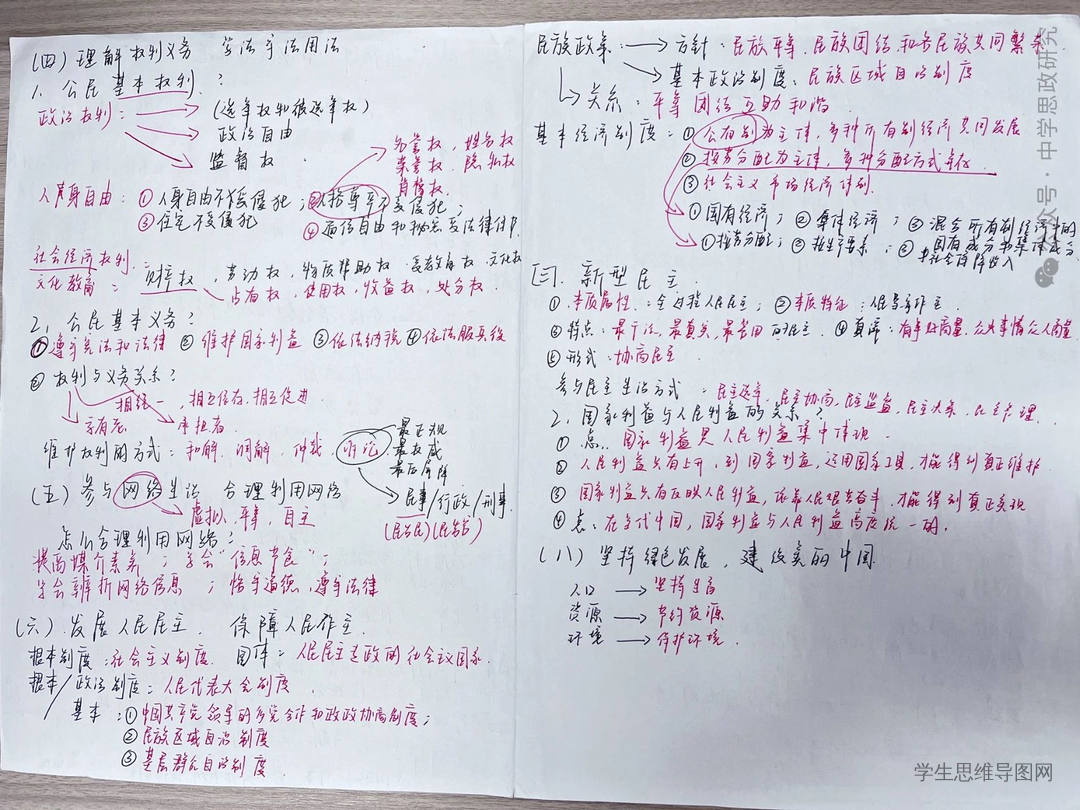 (四)理解权利义务 学法守法用法
1、公民基本权利?
政治权利: (选举权和被选举权)
政治自由
监督权
名誉权,姓名权
荣誉权、隐私权
肖像权.
人身自由:①人身自由不受侵犯;②人格尊严不受侵犯;
③住宅不受侵犯 ④通信自由和秘密受法律保护.
社会经济权利.
文化教育: 财产权,劳动权,物质帮助权.受教育权.文化权
占有权,使用权,收益权,处分权.
2、公民基本义务?
①遵守宪法和法律 ②维护国家利益 ③依法纳税 ④依法服兵役
② 权利与义务关系?
相统一,相互依存.相互促进.
享有者 承担者.
维护权利的方式:和解、调解,仲裁,诉讼
最正规
最权威
最后屏障
民事/行政/刑事
(民告民)(民告官)
(五)参与网络生活 合理利用网络
虚拟、平等、自主
怎么合理利用网络?
提高媒介素养;学会“信息节食”;
学会辨析网络信息;恪守道德、遵守法律
(六).发展人民民主. 保障人民作主.
根本制度:社会主义制度. 国体:人民民主专政的社会主义国家.
根本/政治制度:人民代表大会制度.
基本:①中国共产党领导的多党合作和政政协商制度;
②民族区域自治制度
③基层群众自治制度.
民族政策: 方针:民族平等.民族团结.和各民族共同繁荣.
基本政治制度、民族区域自治制度
关系:平等团结互助和谐.
基本经济制度:①公有制为主体,多种所有制经济共同发展
②按劳分配为主体,多种分配方式并存.
③社会主义市场经济体制.
①国有经济;②集体经济;③混合所有制经济中的
国有成分和集体成分
①按劳分配;②按生产要素;
三.新型民主
①.本质属性:全过程人民民主;②本质特征:人民当家作主.
③特点:最广泛、最真实、最管用的民主 ④真谛:有事好商量,众人事情众人商量.
⑤形式:协商民主
参与民主生活方式:民主选举,民主协商,民主监督,民主决策.民主管理.
2、国家利益与人民利益的关系?
①总.国家利益是人民利益集中体现.
②人民利益只有上升,到国家利益,运用国家工具,才能得到真正维护.
③国家利益只有反映人民利益,依靠人民艰苦奋斗.才能得到真正实现
④总:在当代中国,国家利益与人民利益高度统一的.
(八)坚持绿色发展,建设美的中国.
人口 坚持生育
资源 节约资源
环境 保护环境.
公众号·中学思政研究
学生思维导图网